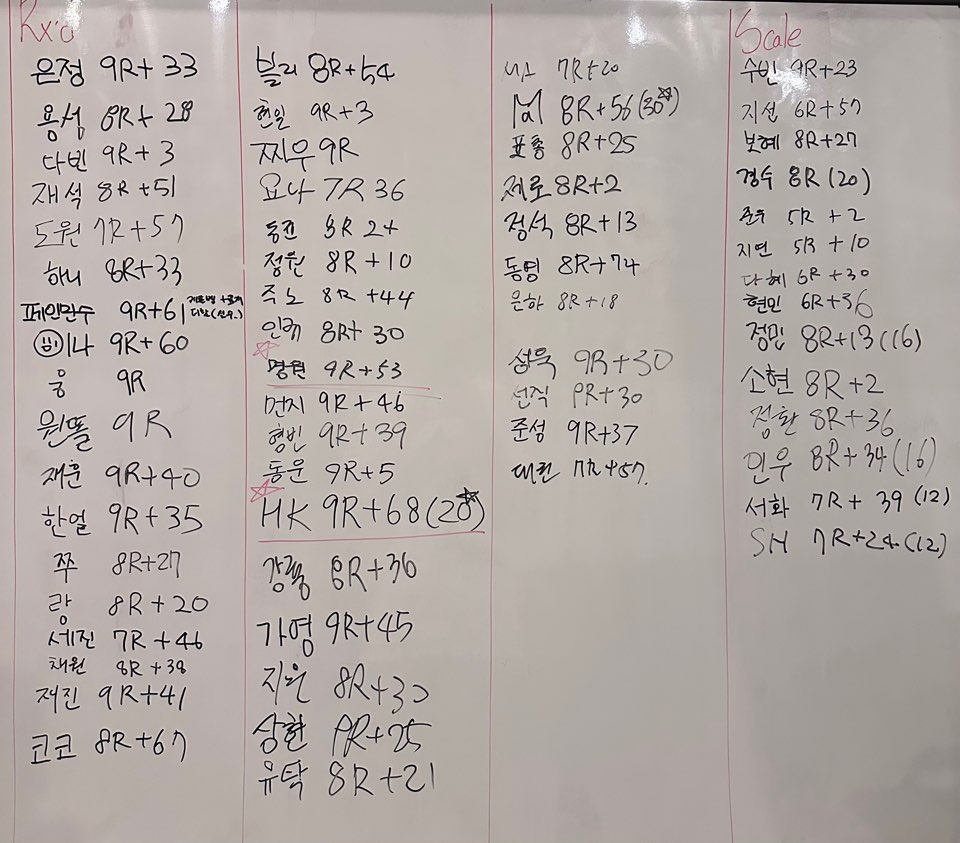 Rx'd
은정 9R+33
용성 8R+28
다빈 9R+3
재석 8R+51
도원 7R+57
하니 8R+33
페인만수 9R+61
미나 9R+60
웅 9R
원똘 9R
재훈 9R+40
한얼 9R+35
쭈 8R+27
랑 8R+20
세진 7R+46
채원 8R+38
재진 9R+41
코코 8R+67
블리 8R+54
현일 9R+3
찌우 9R
요나 7R 36
동진 8R 24
정원 8R+10
주노 8R+44
인케 8R+30
명원 9R+53
먼지 9R+46
형빈 9R+39
동운 9R+5
HK 9R+68(28)
강룡 8R+36
가영 9R+45
지윤 8R+30
상환 9R+25
유탁 8R+21
7R+20
8R+56(30)
표총 8R+25
제로 8R+2
정석 8R+13
동명 8R+74
은하 8R+18
성욱 9R+30
선직 9R+30
준성 9R+37
대원 7R+57
Scale
수빈 9R+23
지선 6R+57
보혜 8R+27
경수 8R(20)
준우 5R+2
지연 5R+10
다혜 6R+30
현민 6R+36
정민 8R+13(16)
소현 8R+2
정환 8R+36
인우 8R+34(16)
서화 7R+39(12)
SH 7R+24(12)